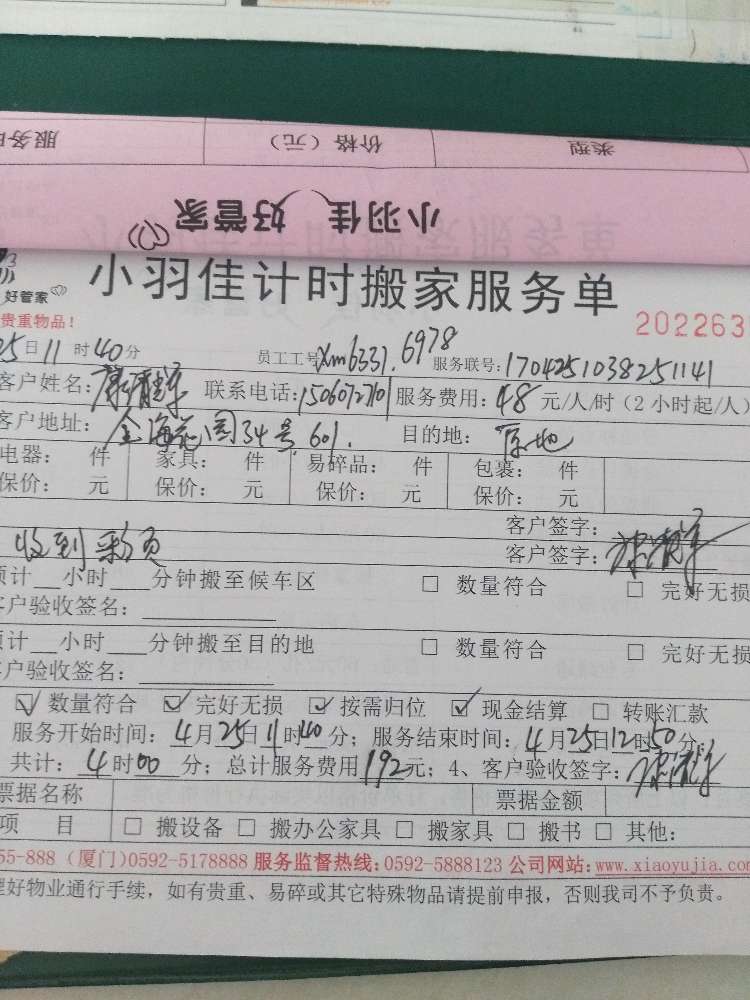 类型 价格（元） 服务
小羽佳 好管家
小羽佳计时搬家服务单
好管家
贵重物品！
202263
25日11时40分 员工工号Xm6331.6978 服务联号:1704251038251141
客户姓名: 联系电话:15060727101 服务费用:48元/人/时(2小时起/人)
客户地址: 金海花园34号601. 目的地: 原地
电器: 件 家具: 件 易碎品: 件 包裹: 件
保价: 元 保价: 元 保价: 元 保价: 元
客户签字:
收到彩页 客户签字:
预计__小时___分钟搬至候车区 □ 数量符合 □ 完好无损
客户验收签名:
预计__小时___分钟搬至目的地 □ 数量符合 □ 完好无损
客户验收签名:
☑数量符合 ☑完好无损 ☑按需归位 ☑现金结算 □转账汇款
服务开始时间: 4月25日11时40分; 服务结束时间: 4月25日12时50分;
共计: 4时00分; 总计服务费用192元; 4、客户验收签字:
票据名称 票据金额
项 目 □搬设备 □搬办公家具 □搬家具 □搬书 □其他:
55-888 (厦门)0592-5178888 服务监督热线:0592-5888123 公司网站:www.xiaoyujia.com
理好物业通行手续，如有贵重、易碎或其它特殊物品请提前申报，否则我司不予负责。